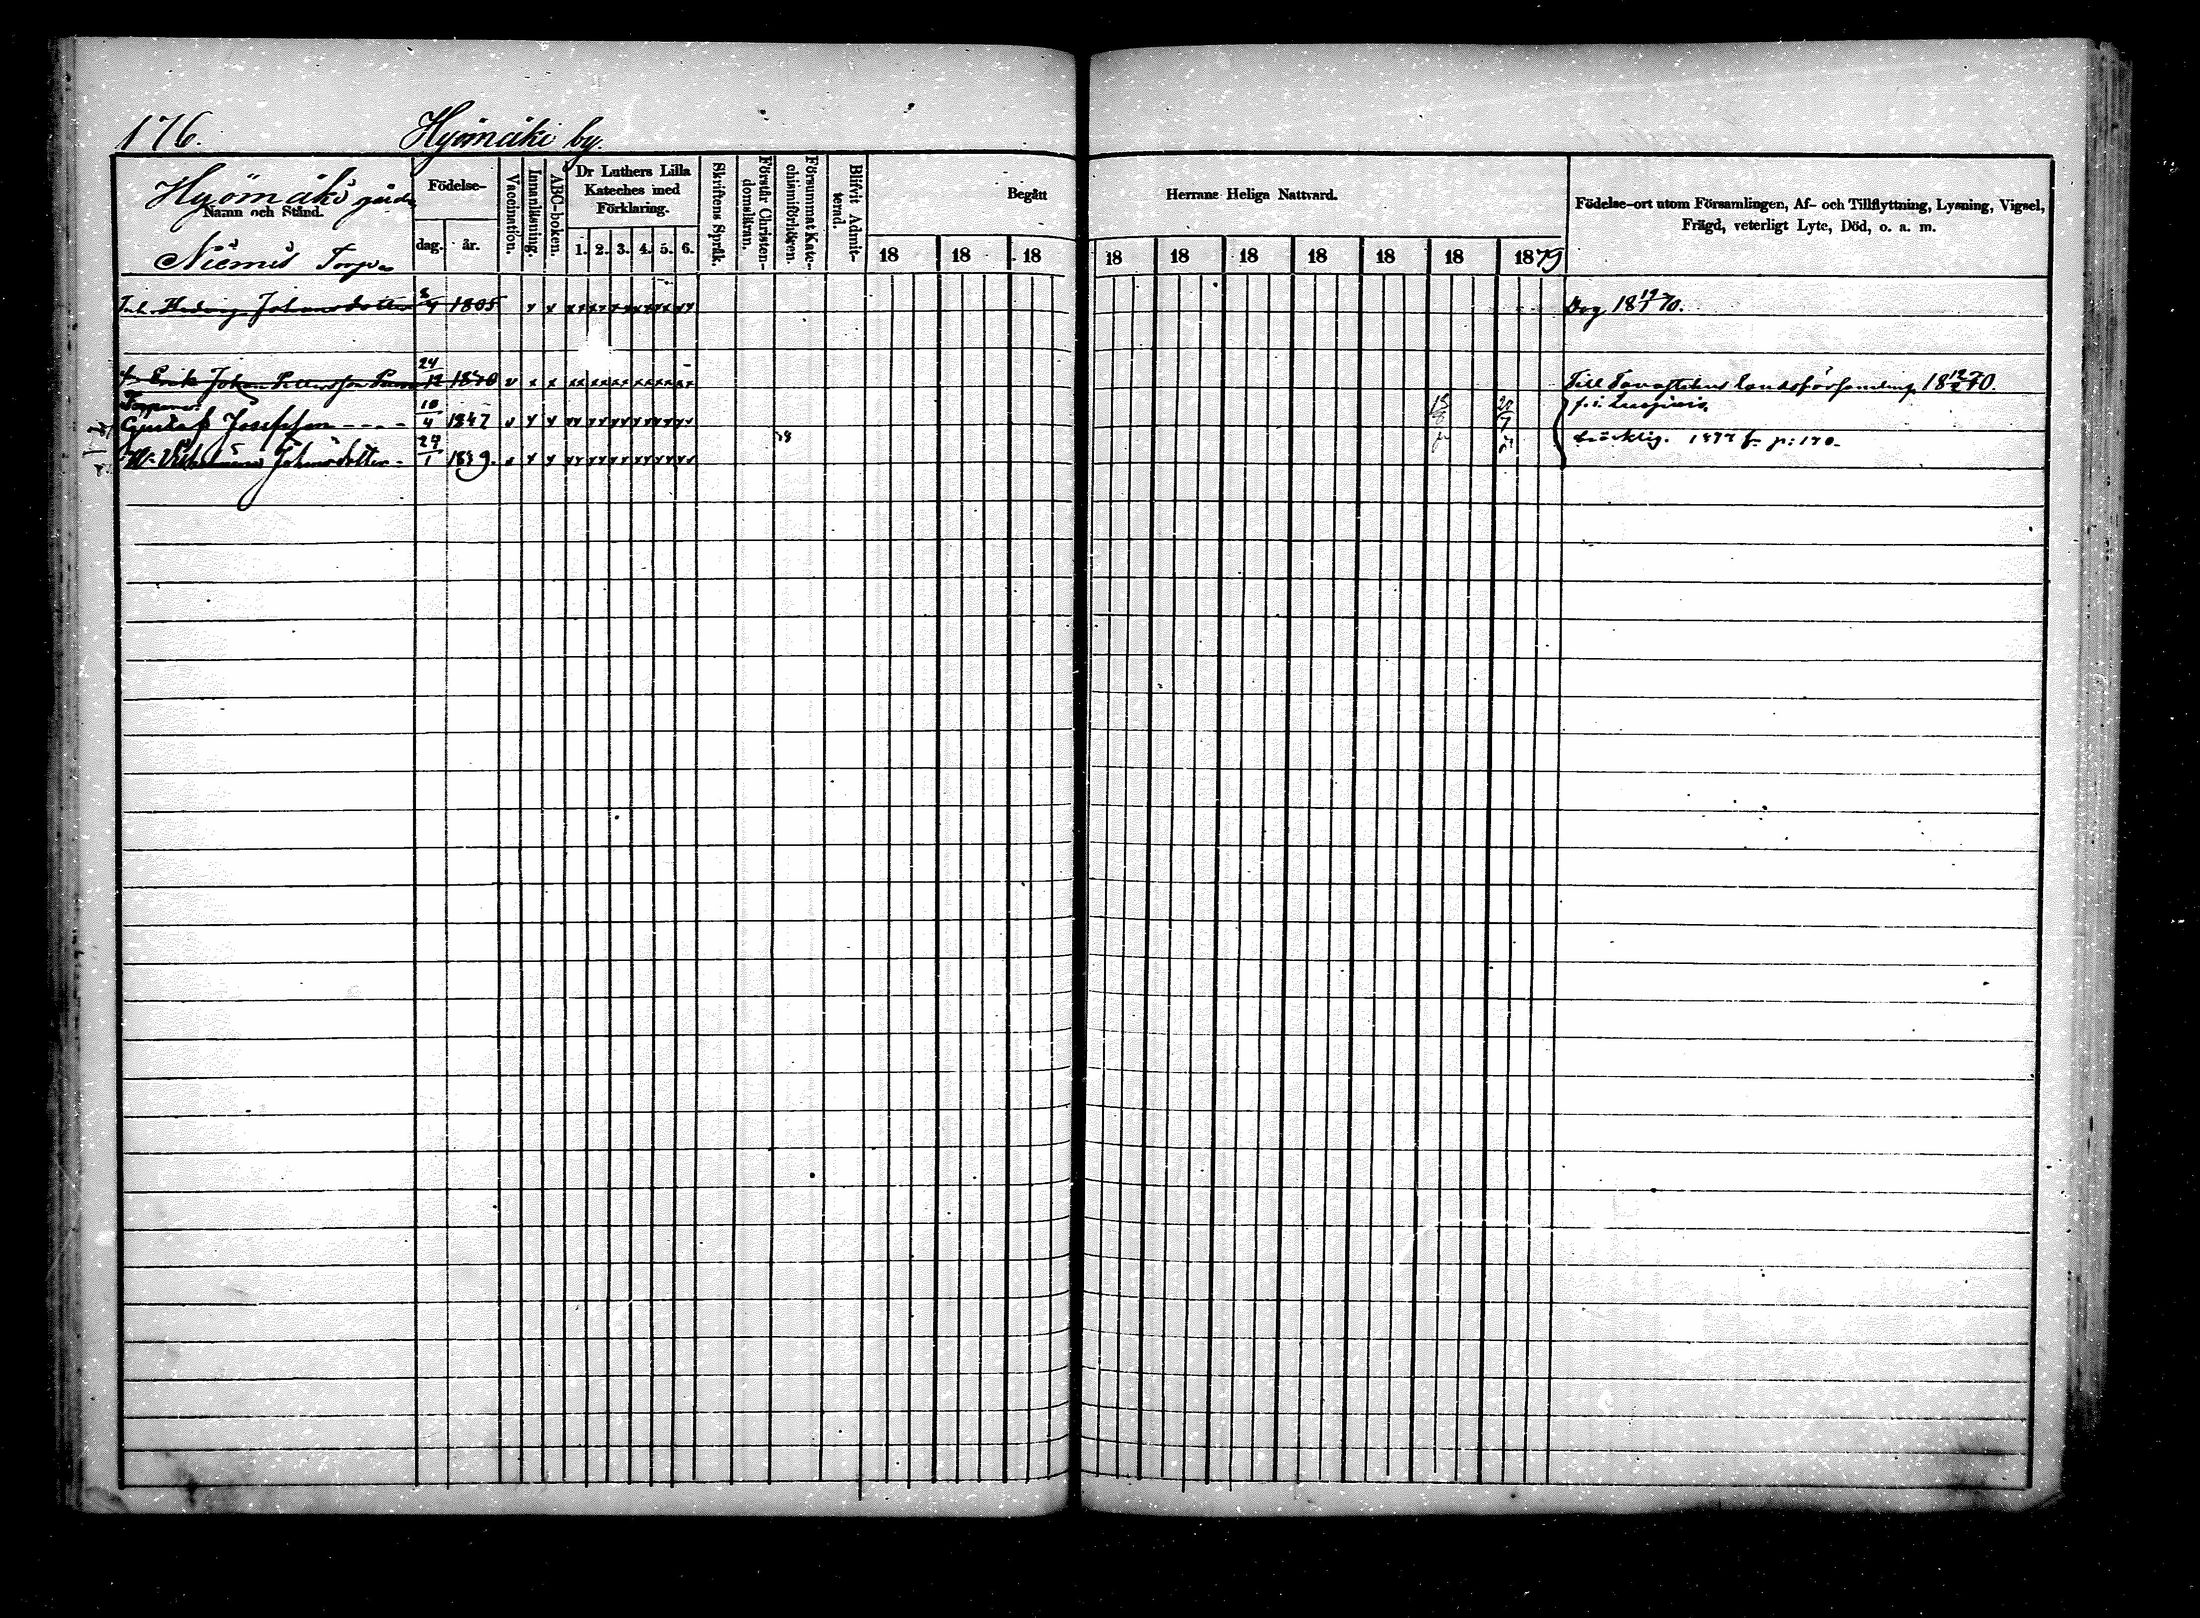 176. Hyömäki by.
Hyömäki gård
Namn och Stånd.
Niemis Torp
Födelse-
dag. år.
Vaccination.
Innanläsning.
ABC-boken.
Dr Luthers Lilla
Kateches med
Förklaring.
1. 2. 3. 4. 5. 6.
Skriftens Språk.
Förstår Christen-
domsläran.
Försummat Kate-
chismiförhören.
Blifvit Admit-
terad.
Begått Herrans Heliga Nattvard.
18 18 18 18 18 18 18 18 18 1879
Födelse-ort utom Församlingen, Af- och Tillflyttning, Lysning, Vigsel,
Frägd, veterligt Lyte, Död, o. a. m.
Inh. Hedvig Johansdotter 1805 Dog 18 19/1 70.
Erik Johan 24/12 1840 Till Tavastehus landsförsamling 70.
Torparen
Gustaf Josefsson - - - - 10/4 1847
H: Vilhelmina Johansdotter - 24/1 1849. 1877 fr p: 170.